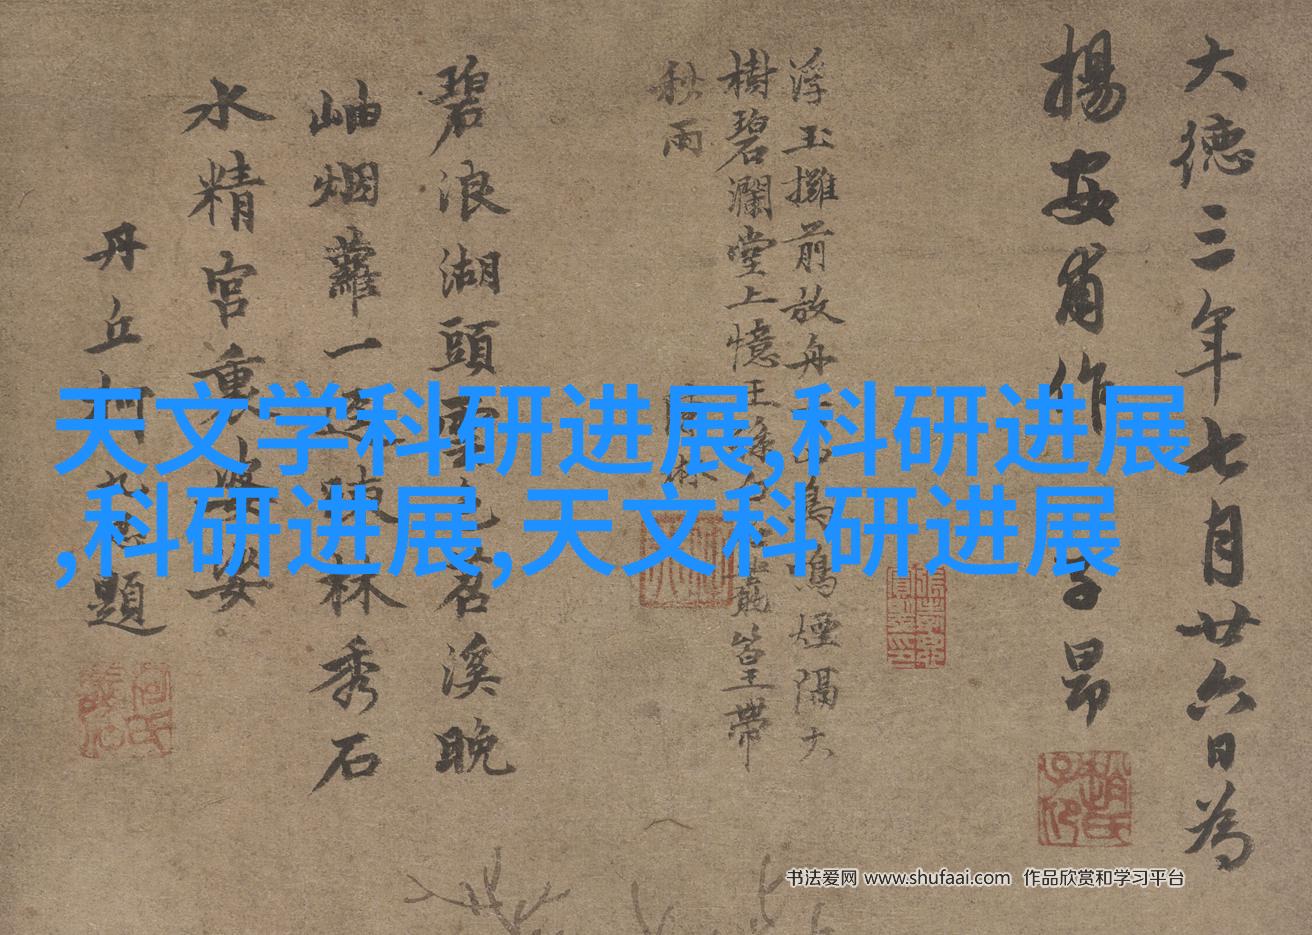 大德三年七月廿六日為
揚安甫作子昂
浮玉攤前放舟鳥鳴煙隔大
樹碧瀾堂上憶王篁帶
秋雨
碧浪湖頭苕溪晚
岫烟蘿一林秀石
水精宮裏
丹丘題
天文学科研进展,科研进展
,科研进展,天文科研进展
书法爱网 www.shufaai.com 作品欣赏和学习平台